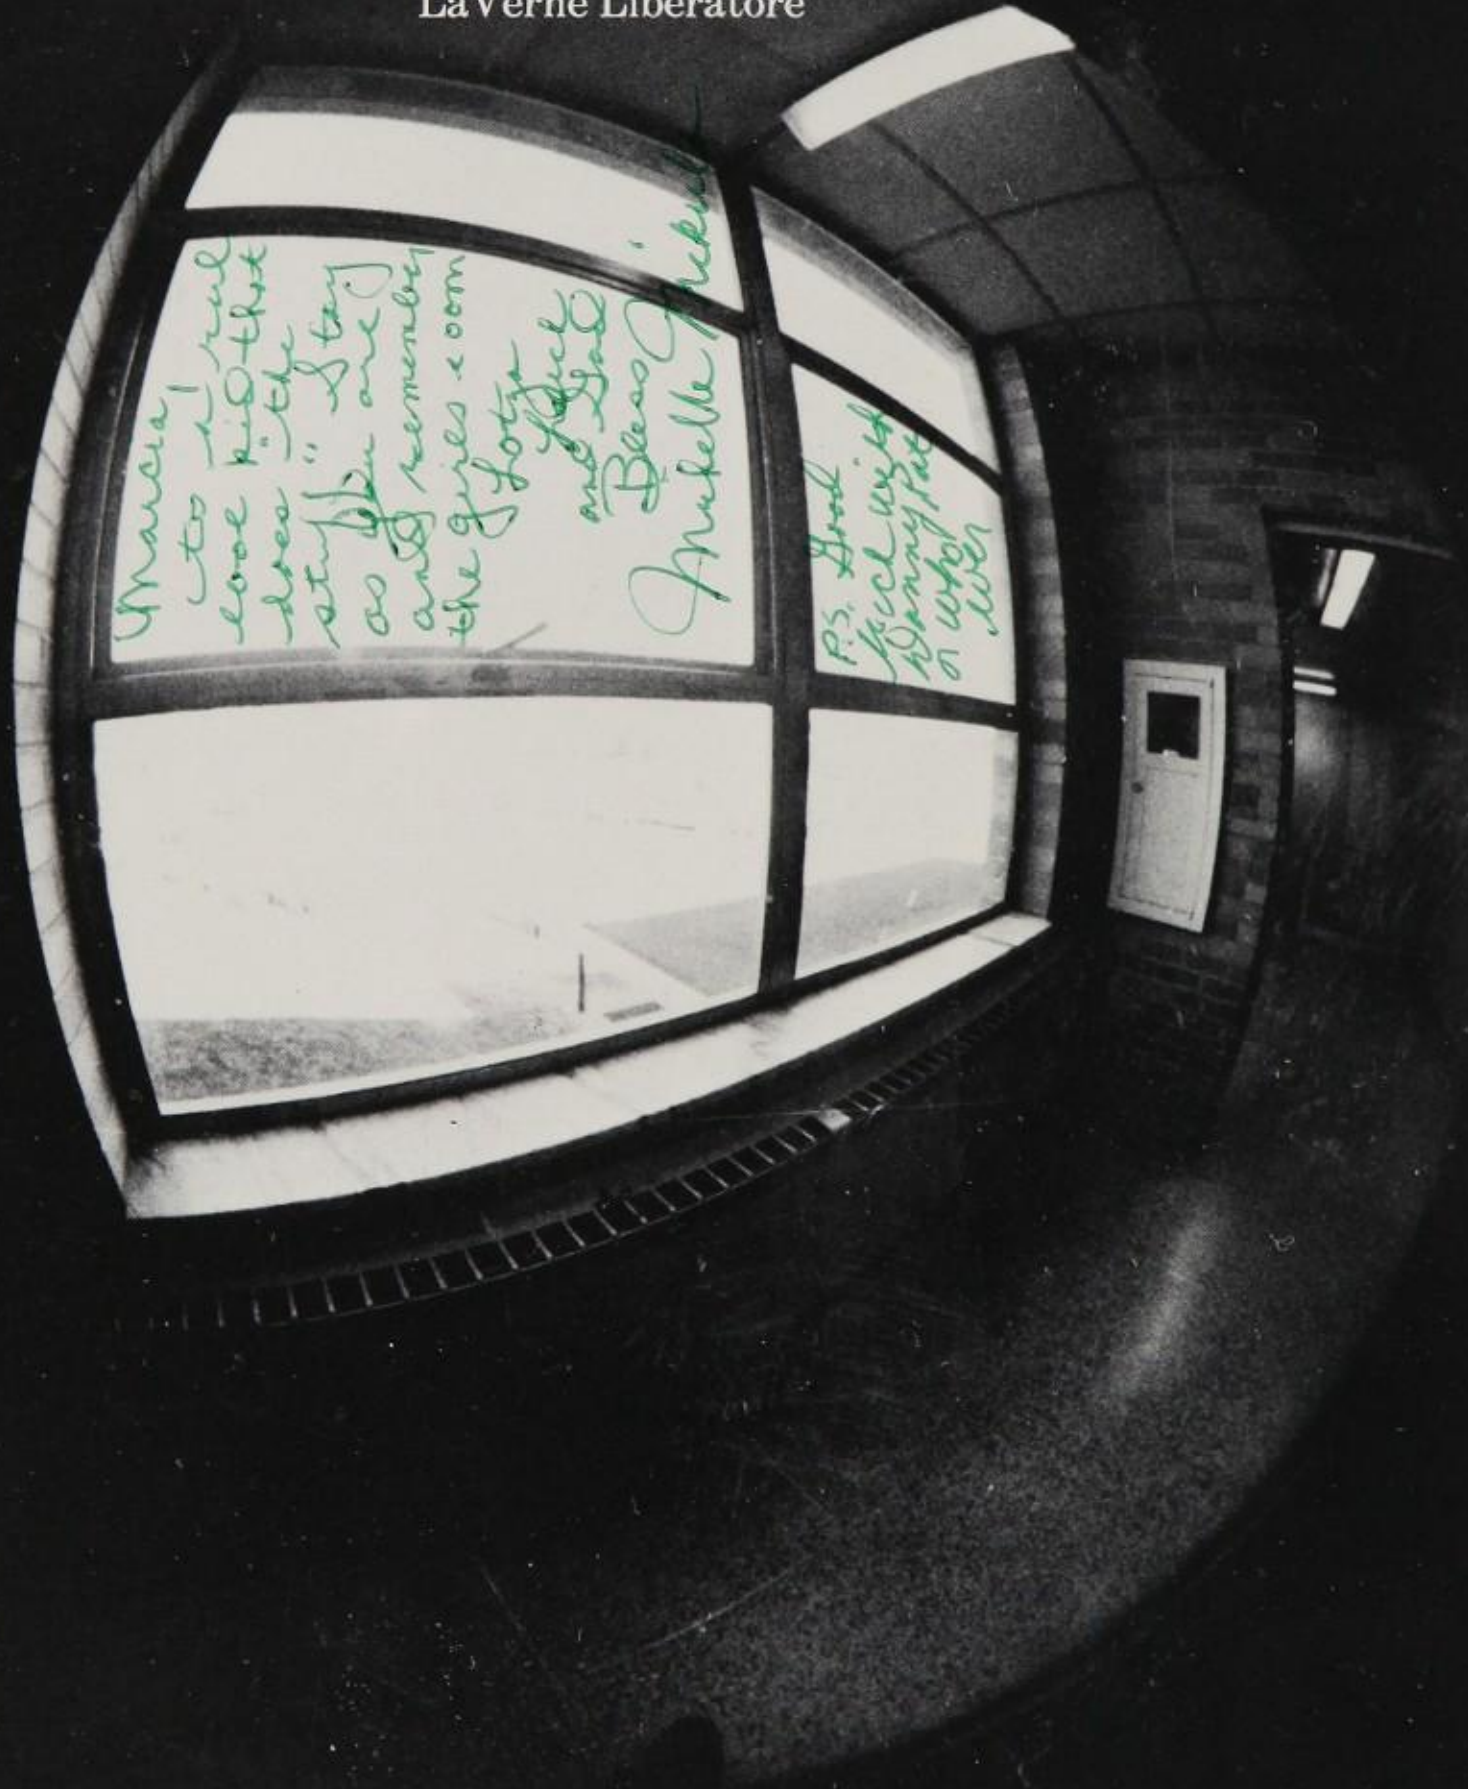 LaVerne Liberatore
Marcia,
to a real
cool kid that
does "the
stuff" Stay
as you are
and remember
the girls room
Lotza
Luck
and God
Bless
Michelle
P.S. Good
luck with
Danny, Pat
or who
ever